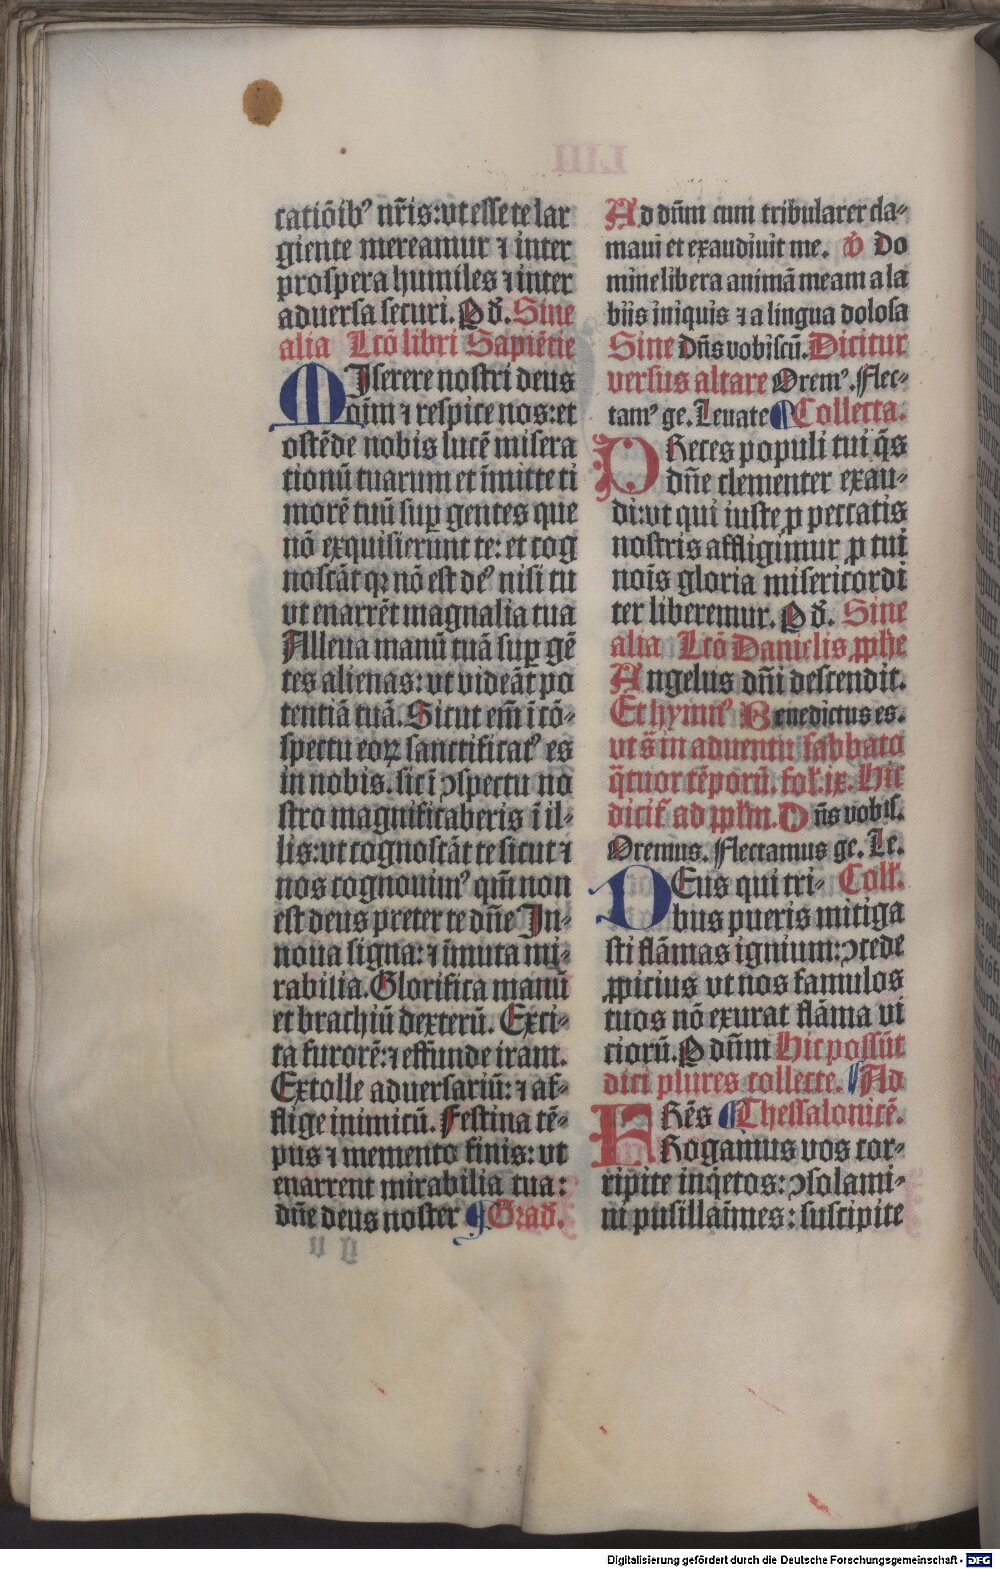 LIII
catiōib⁹ nr̄is: vt esse te lar
giente mereamur ⁊ inter
prospera humiles ⁊ inter
aduersa securi. P d̄. Sine
alia Lcō libri Sapiētie
MIserere nostri deus
oīm ⁊ respice nos: et
ostēde nobis lucē misera
tionū tuarum et īmitte ti
morē tuū sup gentes que
nō exquisierunt te: et cog
noscāt qꝛ nō est de⁹ nisi tu
vt enarrēt magnalia tua
Alleua manū tuā sup gē
tes alienas: vt videāt po
tentiā tuā. Sicut em̄ ī cō-
spectu eoꝝ sanctificat⁹ es
in nobis. sic ī ↄspectu no
stro magnificaberis ī il-
lis: vt cognoscāt te sicut ⁊
nos cognouim⁹ qm̄ non
est deus preter te dn̄e In-
noua signa: ⁊ īmuta mi-
rabilia. Glorifica manū
et brachiū dexterū. Exci-
ta furorē: ⁊ effunde iram.
Extolle aduersariū: ⁊ af-
flige inimicū. Festina tē-
pus ⁊ memento finis: vt
enarrent mirabilia tua:
dn̄e deus noster ¶ Grad̄.
Ad dn̄m cum tribularer cla-
maui et exaudiuit me. v̄ Do
mine libera animā meam a la
biis iniquis ⁊ a lingua dolosa
Sine Dn̄s vobiscū. Dicitur
versus altare Orem⁹. Flec-
tam⁹ ge. Leuate ¶ Collecta.
PReces populi tui q̄s
dn̄e clementer exau-
di: vt qui iuste ꝓ peccatis
nostris affligimur ꝓ tui
nōis gloria misericordi
ter liberemur. P d̄. Sine
alia Lcō Danielis ꝓphe
Angelus dn̄i descendit.
Et hymn⁹ Benedictus es.
vt s̄ in aduentu sabbato
q̄tuor tēporū. fol. ix. Hic
dicit̄ ad ꝓphn̄. Dn̄s vobis.
Oremus. Flectamus ge. Le.
DEus qui tri- Coll.
bus pueris mitiga
sti flāmas ignium: ↄcede
ꝓpicius vt nos famulos
tuos nō exurat flāma vi
ciorū. P dn̄m Hic possūt
dici plures collecte. ¶ Ad
FRēs ¶ Thessalonicē.
Rogamus vos cor-
ripite inq̄etos: ↄsolami-
ni pusillaīmes: suscipite
Digitalisierung gefördert durch die Deutsche Forschungsgemeinschaft - DFG